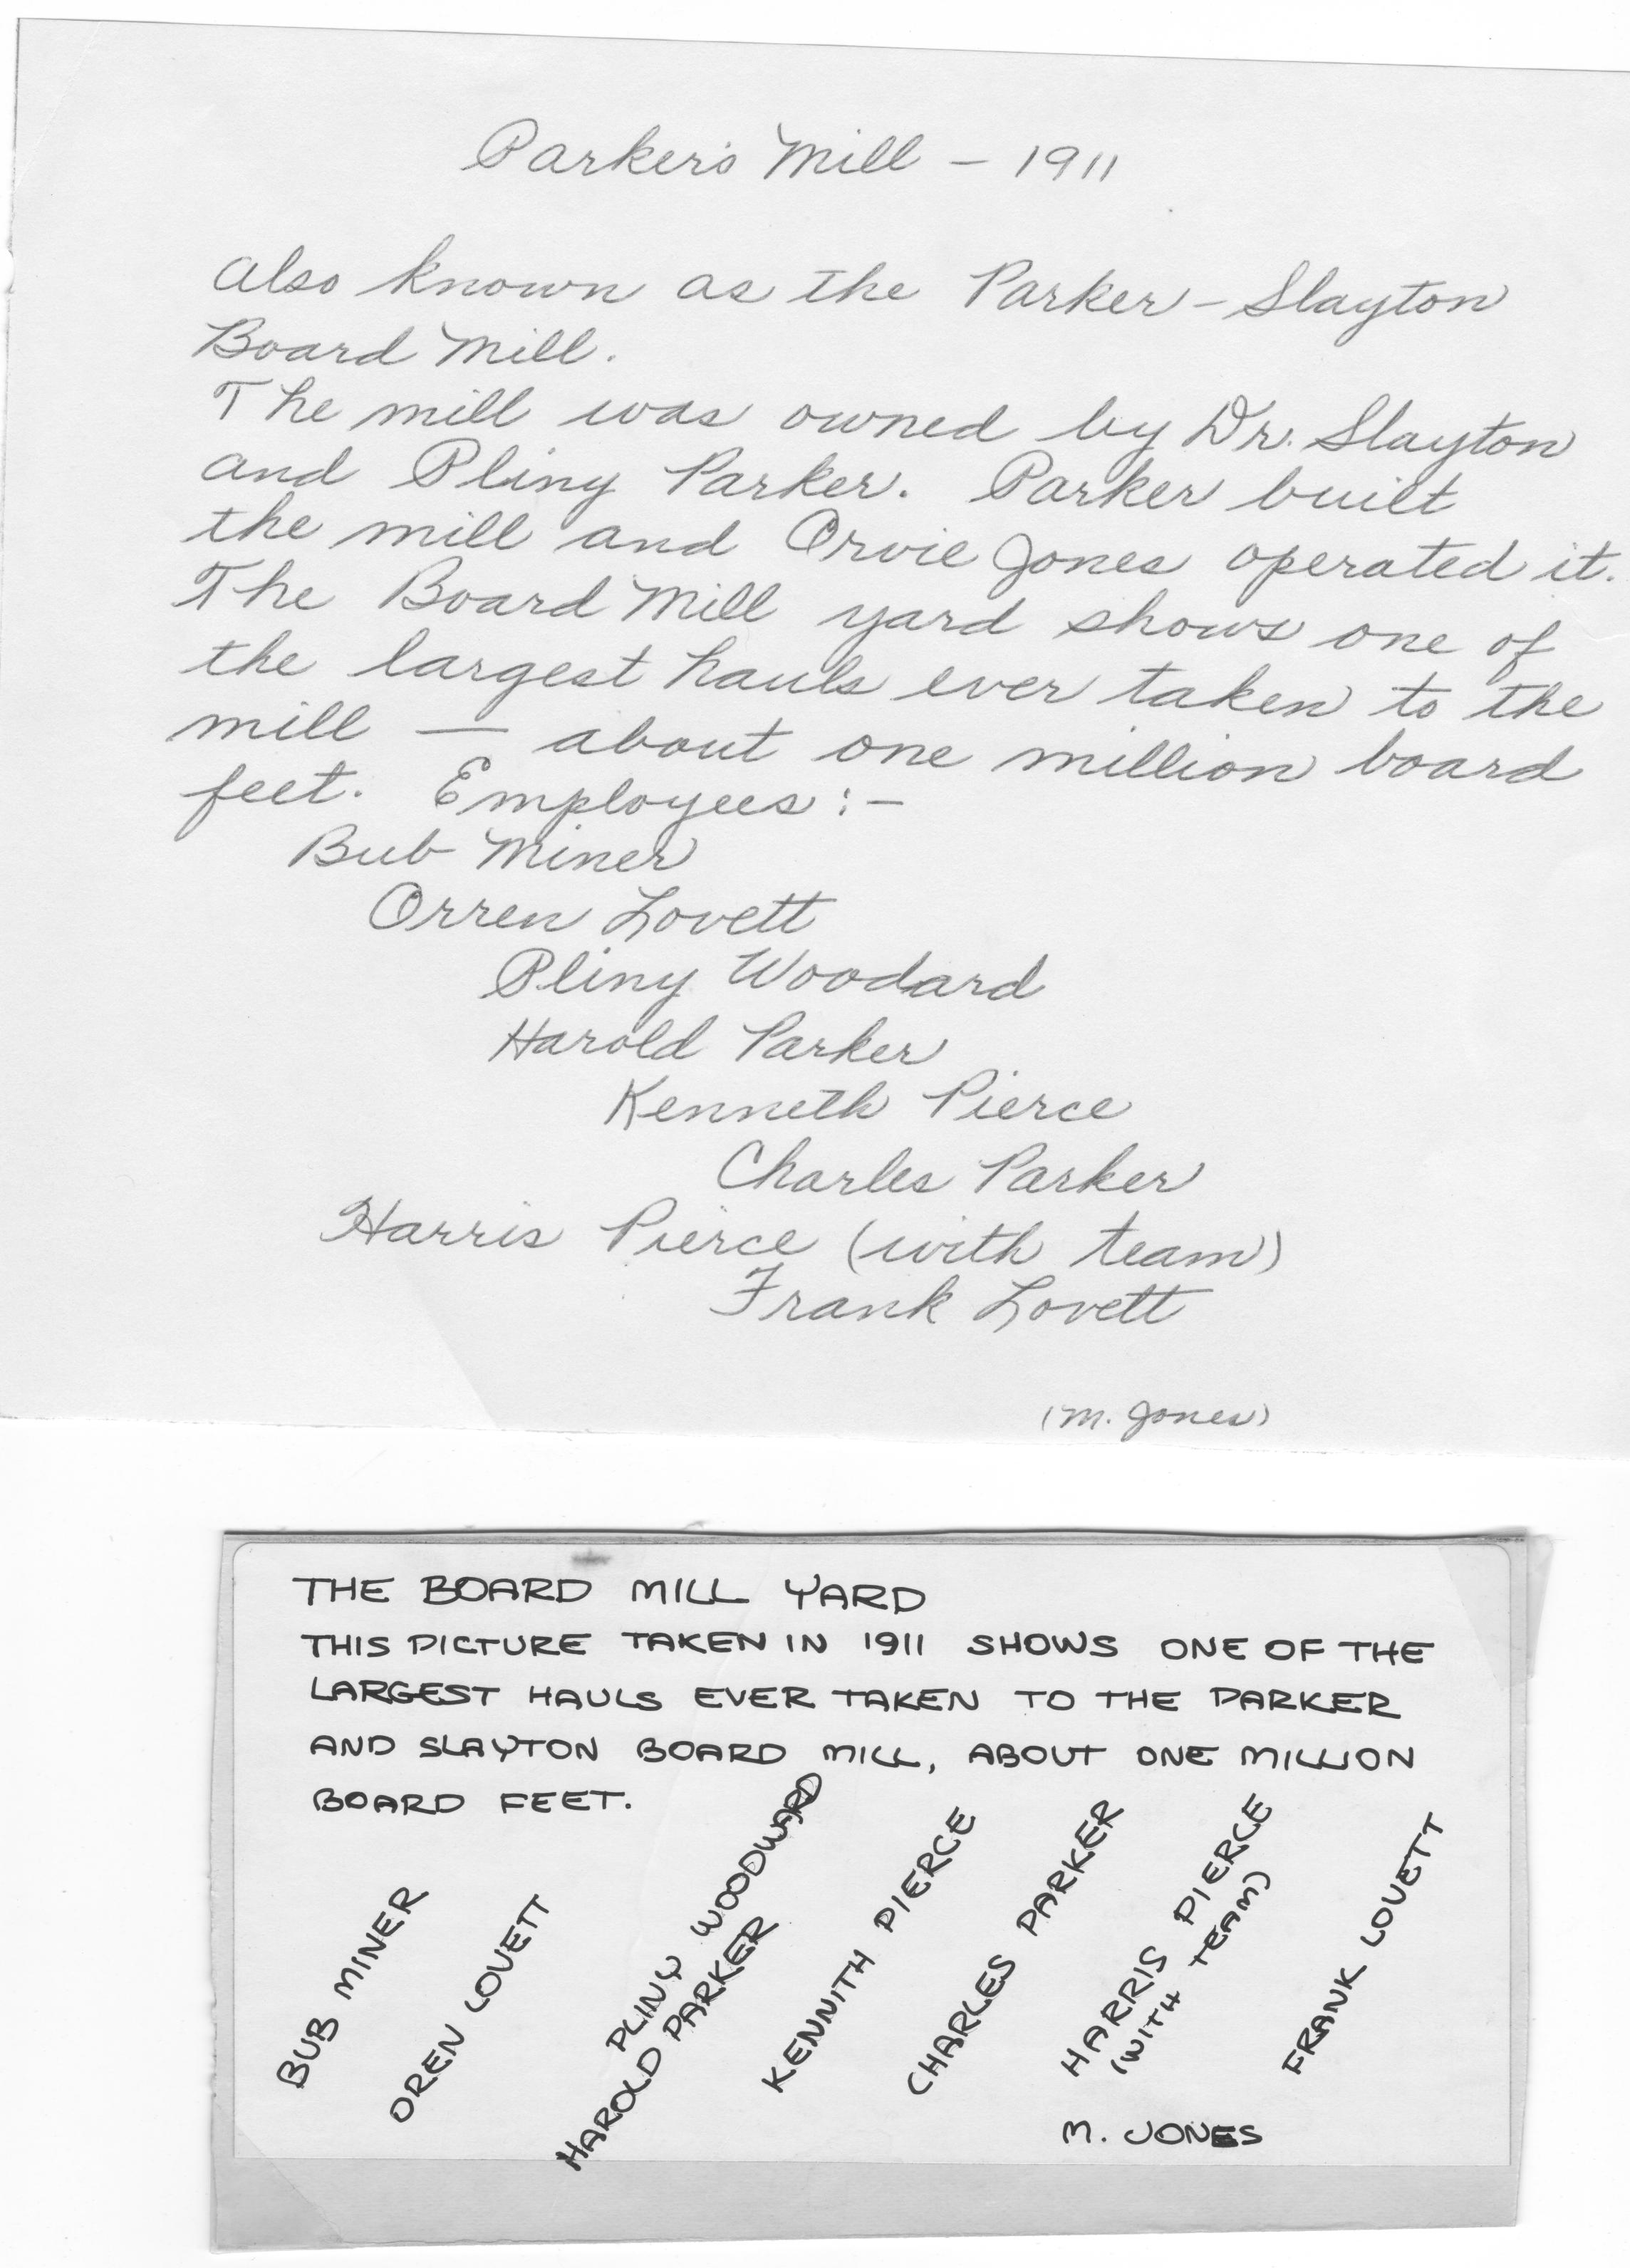 Parker's Mill – 1911
Also known as the Parker – Slayton
Board Mill.
The mill was owned by Dr. Slayton
and Pliny Parker. Parker built
the mill and Orvie Jones operated it.
The Board Mill yard shows one of
the largest hauls ever taken to the
mill — about one million board
feet. Employees :–
Bub Miner
Orren Lovett
Pliny Woodard
Harold Parker
Kenneth Pierce
Charles Parker
Harris Pierce (with team)
Frank Lovett
(M. Jones)
THE BOARD MILL YARD
THIS PICTURE TAKEN IN 1911 SHOWS ONE OF THE
LARGEST HAULS EVER TAKEN TO THE PARKER
AND SLAYTON BOARD MILL, ABOUT ONE MILLION
BOARD FEET.
BUB MINER
OREN LOVETT
PLINY WOODWARD
HAROLD PARKER
KENNITH PIERCE
CHARLES PARKER
HARRIS PIERCE
(WITH TEAM)
FRANK LOVETT
M. JONES